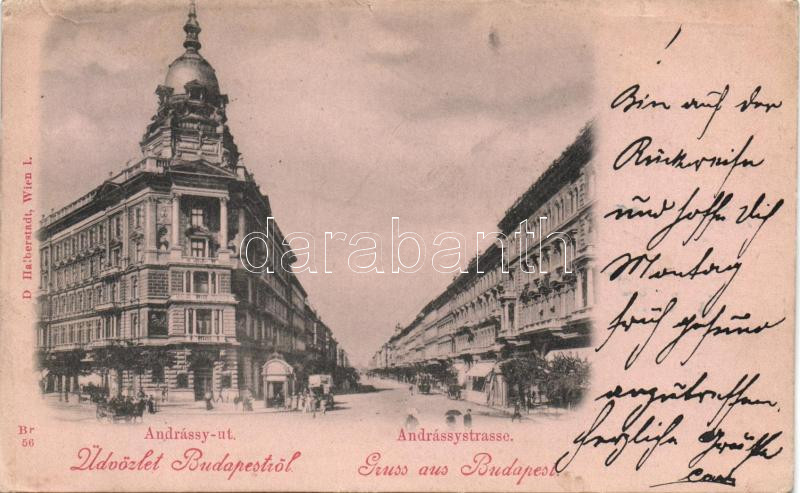 D Halberstadt, Wien I.
Br
56
Andrássy-ut.
Andrássystrasse.
Üdvözlet Budapestről.
Gruss aus Budapest.
darabanth
Bin auf der
Rückreise
und hoffe Dich
Montag
früh gesund
anzutreffen.
Herzliche Grüße